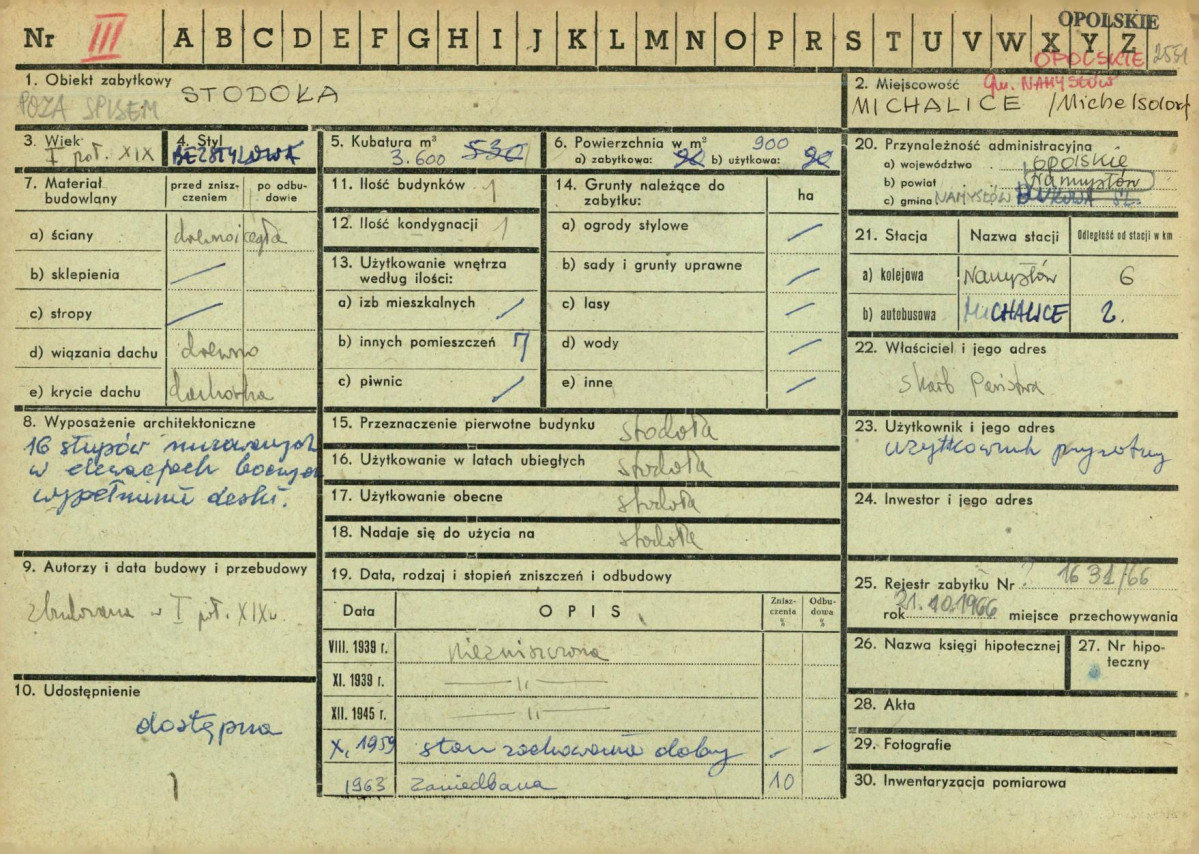 OPOLSKIE
Nr III A B C D E F G H I J K L M N O P R S T U V W X Y Z
OPOLSKIE 2551
1. Obiekt zabytkowy
POZA SPISEM STODOŁA
2. Miejscowość gm. NAMYSŁÓW
MICHALICE /Michelsdorf
3. Wiek
I poł. XIX
4. Styl
BEZSTYLOWA
5. Kubatura m³
3.600 530
6. Powierzchnia w m² 900
a) zabytkowa: 90 b) użytkowa: 90
20. Przynależność administracyjna
a) województwo opolskie
b) powiat Namysłów
c) gmina NAMYSŁÓW
7. Materiał budowlany
przed zniszczeniem
po odbudowie
a) ściany drewno i cegła
b) sklepienia
c) stropy
d) wiązania dachu drewno
e) krycie dachu dachówka
11. Ilość budynków 1
12. Ilość kondygnacji 1
13. Użytkowanie wnętrza
według ilości:
a) izb mieszkalnych
b) innych pomieszczeń 7
c) piwnic
14. Grunty należące do
zabytku:
ha
a) ogrody stylowe
b) sady i grunty uprawne
c) lasy
d) wody
e) inne
21. Stacja Nazwa stacji Odległość od stacji w km
a) kolejowa Namysłów 6
b) autobusowa MICHALICE 2.
22. Właściciel i jego adres
Skarb Państwa
8. Wyposażenie architektoniczne
16 słupów murowanych
w elewacjach bocznych
wypełnienie deski.
15. Przeznaczenie pierwotne budynku stodoła
16. Użytkowanie w latach ubiegłych stodoła
17. Użytkowanie obecne stodoła
18. Nadaje się do użycia na stodoła
23. Użytkownik i jego adres
użytkownik prywatny
24. Inwestor i jego adres
9. Autorzy i data budowy i przebudowy
zbudowana w I poł. XIX w
19. Data, rodzaj i stopień zniszczeń i odbudowy
Data OPIS Zniszczenia % Odbudowia %
VIII. 1939 r. niezniszczona
XI. 1939 r. — „ —
XII. 1945 r. — „ —
X, 1959 stan zachowania dobry - -
1963 zaniedbana 10
25. Rejestr zabytku Nr ? 1631/66
rok 21.10.1966 miejsce przechowywania
26. Nazwa księgi hipotecznej
27. Nr hipoteczny
10. Udostępnienie
dostępna
28. Akta
29. Fotografie
30. Inwentaryzacja pomiarowa